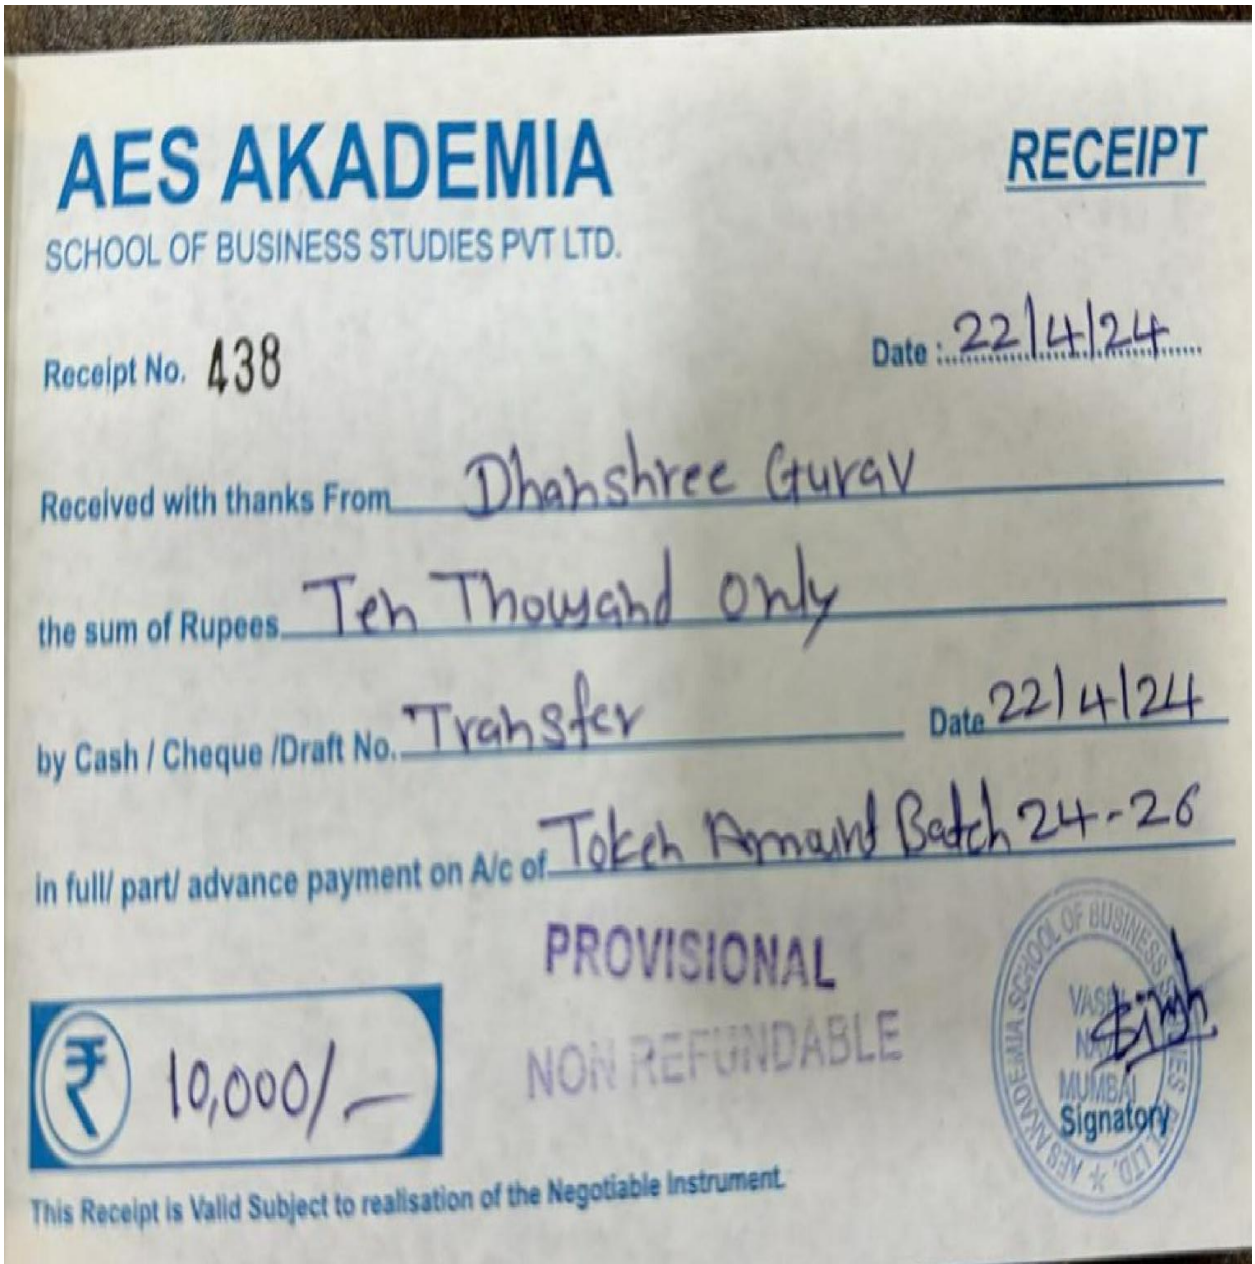 AES AKADEMIA
RECEIPT
SCHOOL OF BUSINESS STUDIES PVT LTD.
Receipt No. 438
Date : 22/4/24
Received with thanks From Dhanshree Gurav
the sum of Rupees Ten Thousand only
by Cash / Cheque /Draft No. Transfer Date 22/4/24
in full/ part/ advance payment on A/c of Token Amount Batch 24-26
PROVISIONAL
NON REFUNDABLE
₹ 10,000/-
AES AKADEMIA SCHOOL OF BUSINESS LTD.
MUMBAI
Singh
Signatory
This Receipt is Valid Subject to realisation of the Negotiable Instrument.